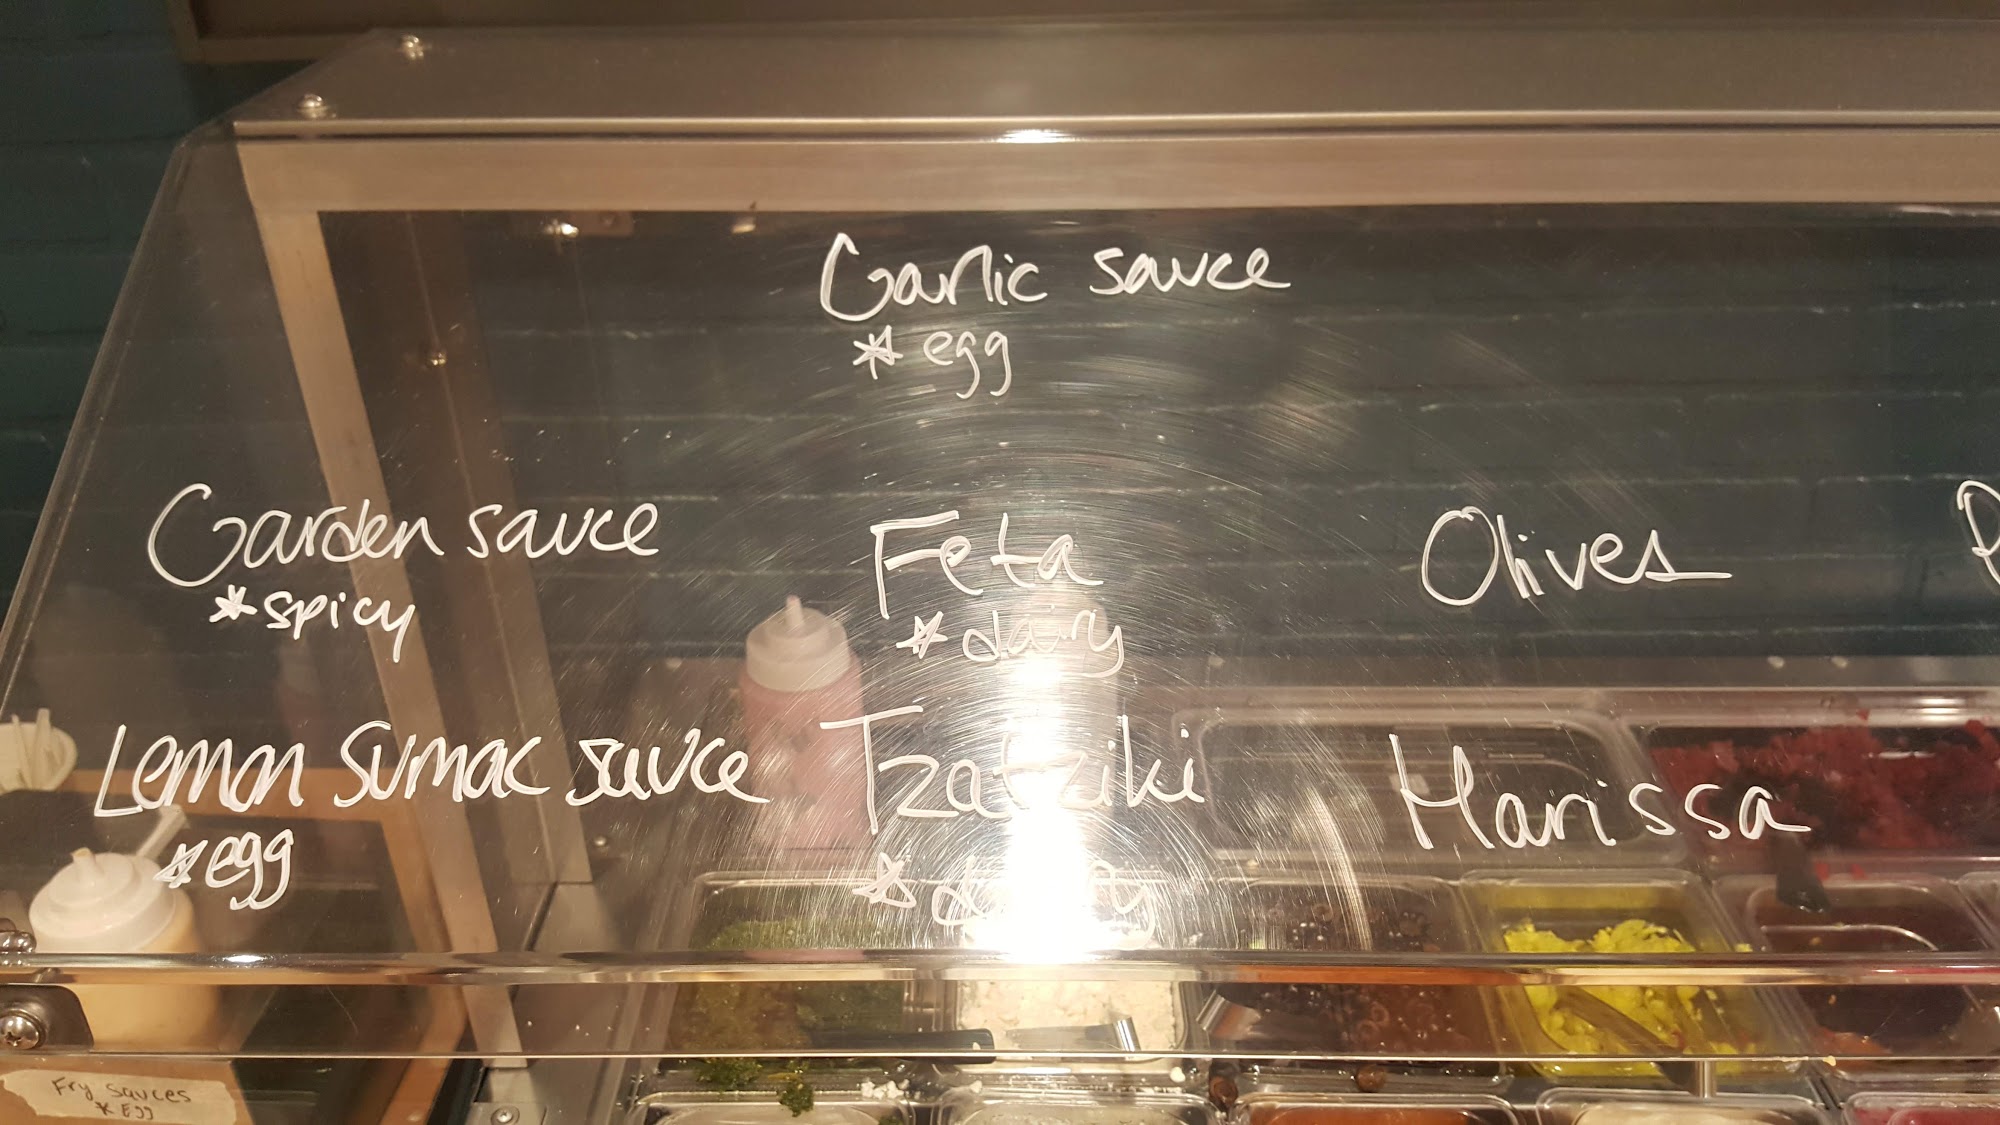 Garlic sauce
*egg
Garden sauce
*spicy
Feta
*dairy
Olives
Lemon Sumac sauce
*egg
Tzatziki
*dairy
Harissa
Fry sauces
*Egg